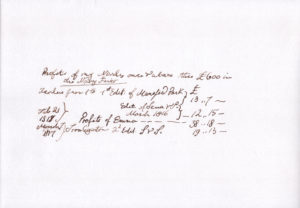 Profits of my Novels, over & above the £600 in
the Navy Fives
Residue from the 1st Edit: of Mansfield Park £
Edit: of Sense & S:
March 1816 } 13 .. 7 —
Feb 21 1818
Profits of Emma — — — 38 .. 18 —
from 2d Edit S & S. 19 .. 13 —
12 .. 15 —